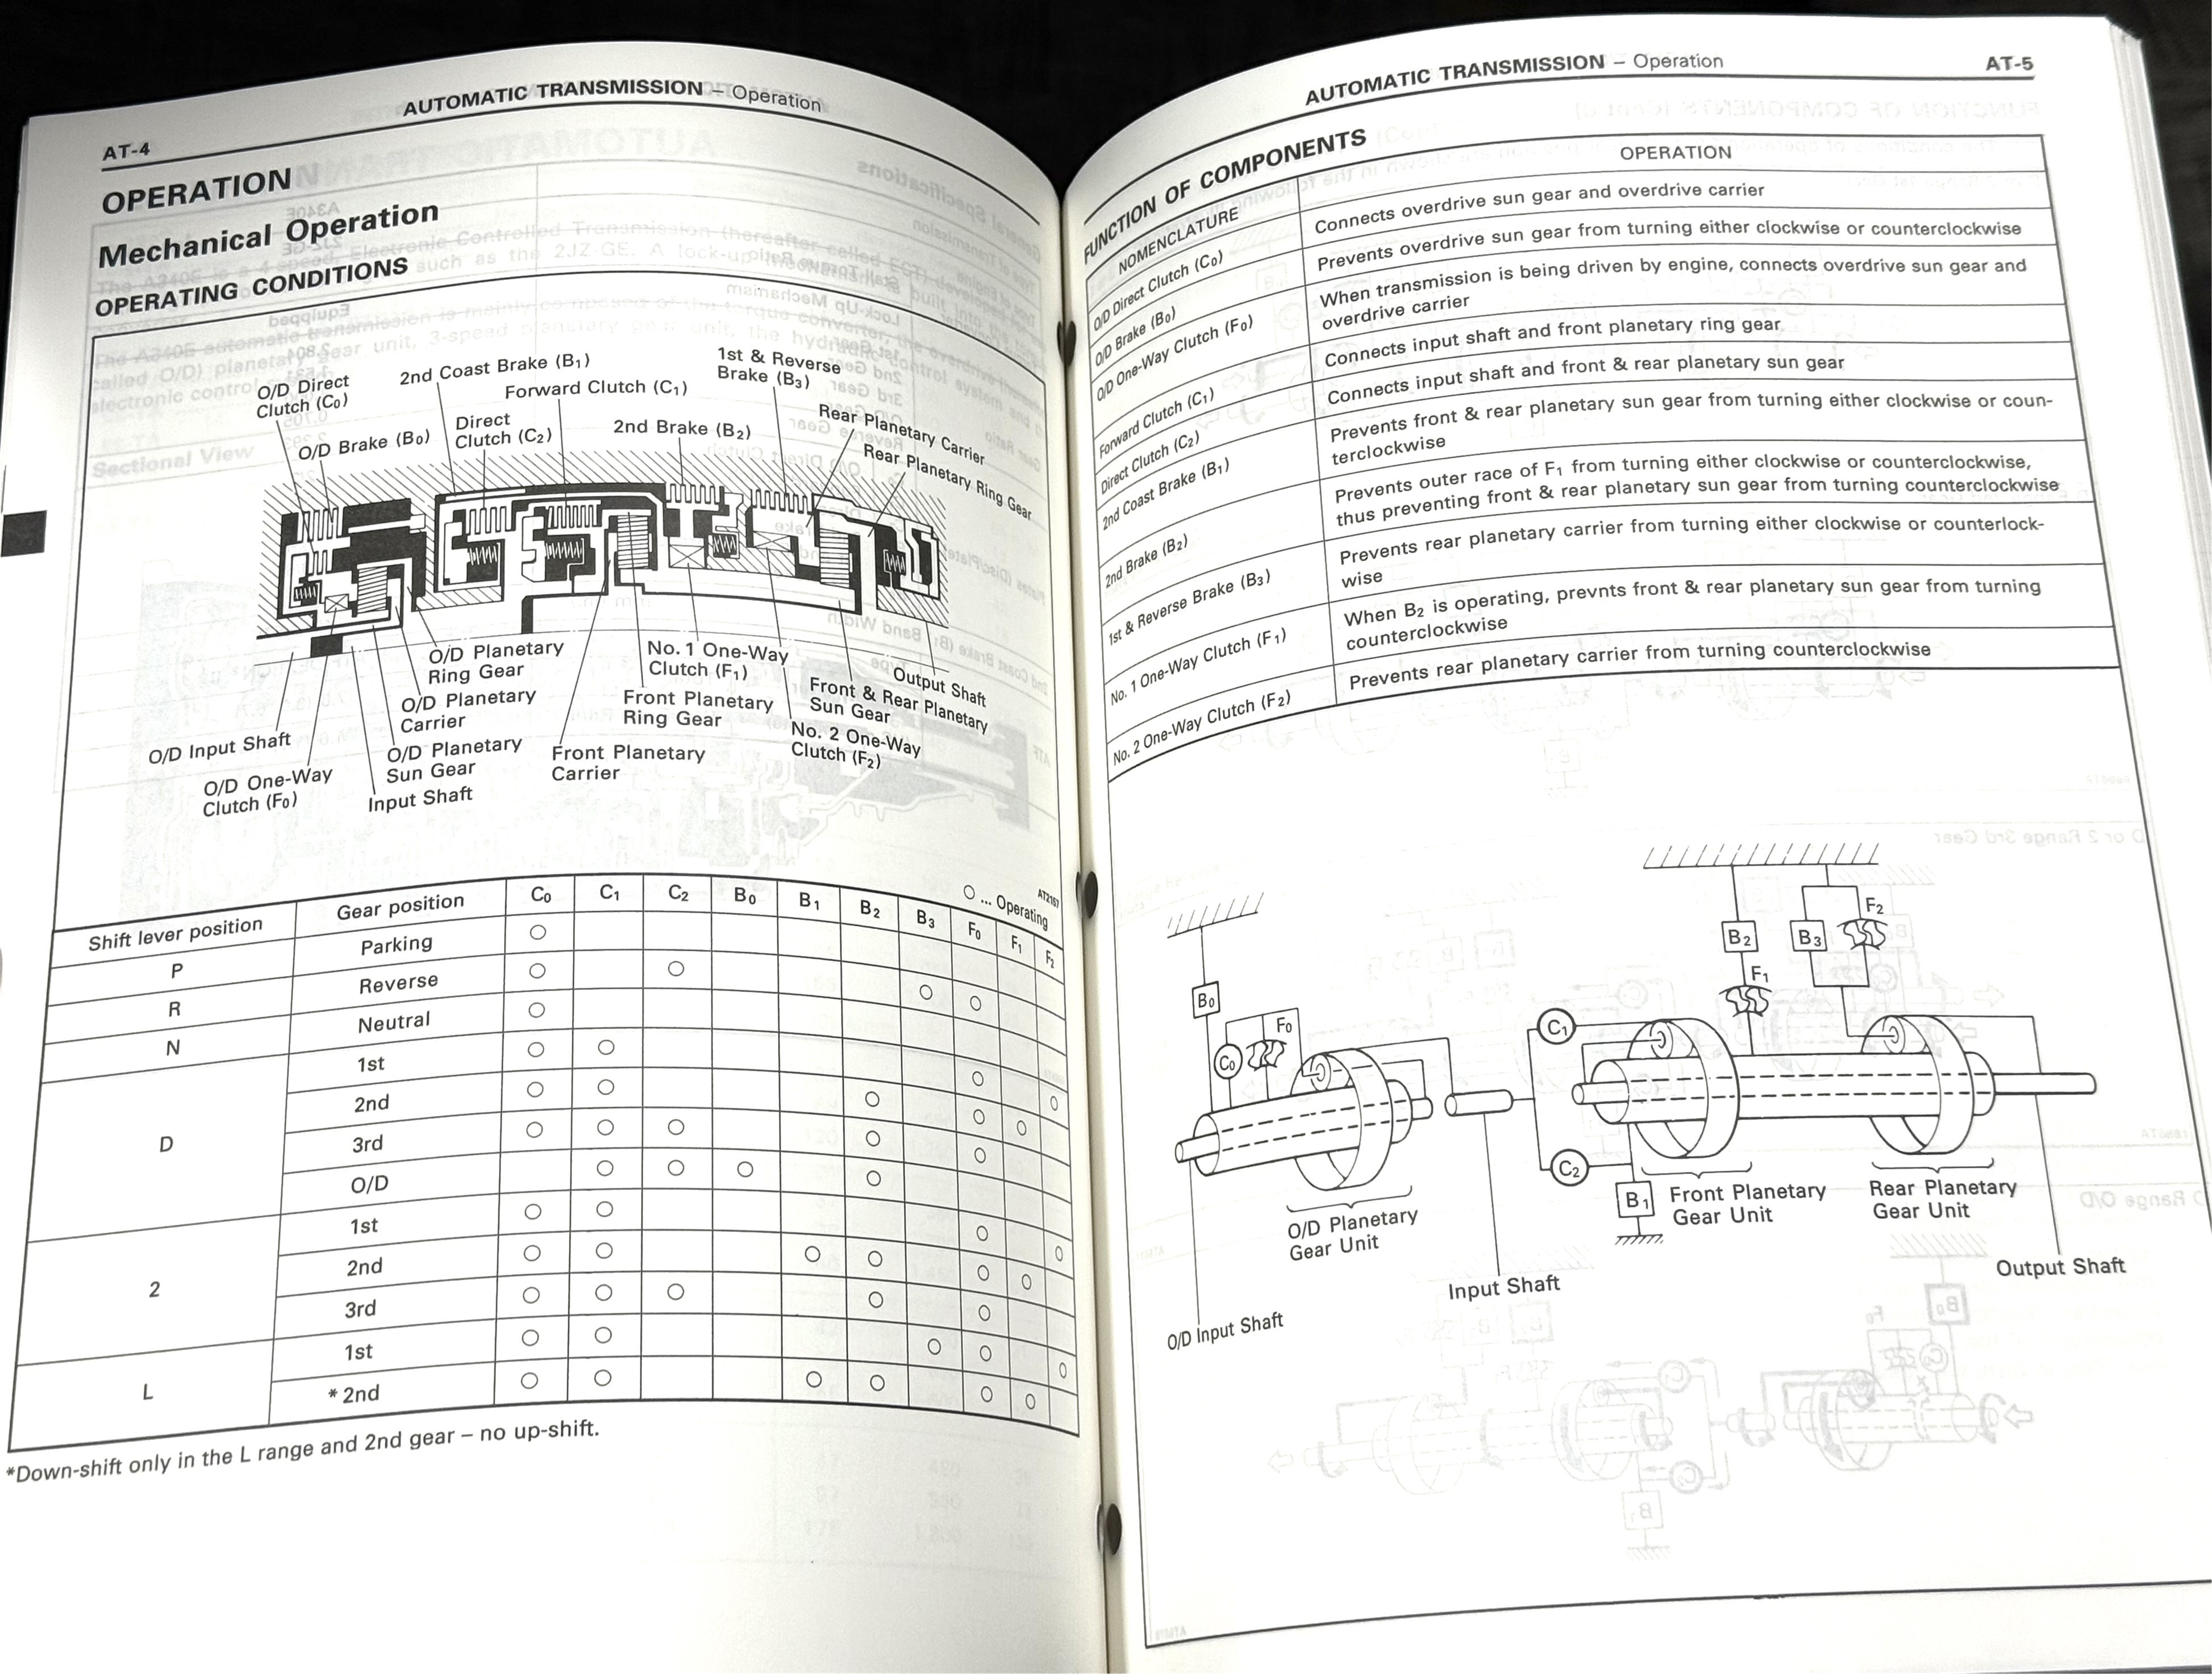 AUTOMATIC TRANSMISSION – Operation
AT-4
OPERATION
Mechanical Operation
OPERATING CONDITIONS
O/D Direct
Clutch (C0)
2nd Coast Brake (B1)
1st & Reverse
Brake (B3)
Forward Clutch (C1)
O/D Brake (B0)
Direct
Clutch (C2)
2nd Brake (B2)
Rear Planetary Carrier
Rear Planetary Ring Gear
O/D Planetary
Ring Gear
No. 1 One-Way
Clutch (F1)
Output Shaft
O/D Planetary
Carrier
Front Planetary
Ring Gear
Front & Rear Planetary
Sun Gear
O/D Input Shaft
O/D Planetary
Sun Gear
Front Planetary
Carrier
No. 2 One-Way
Clutch (F2)
O/D One-Way
Clutch (F0)
Input Shaft
AT2167
○ ... Operating
Shift lever position Gear position C0 C1 C2 B0 B1 B2 B3 F0 F1 F2
P Parking ○
R Reverse ○ ○ ○ ○
N Neutral ○
D 1st ○ ○ ○ ○
2nd ○ ○ ○ ○ ○
3rd ○ ○ ○ ○ ○
O/D ○ ○ ○ ○
2 1st ○ ○ ○ ○
2nd ○ ○ ○ ○ ○ ○
3rd ○ ○ ○ ○ ○
L 1st ○ ○ ○ ○ ○
*2nd ○ ○ ○ ○ ○ ○
*Down-shift only in the L range and 2nd gear – no up-shift.
AUTOMATIC TRANSMISSION – Operation
AT-5
FUNCTION OF COMPONENTS
NOMENCLATURE OPERATION
O/D Direct Clutch (C0) Connects overdrive sun gear and overdrive carrier
O/D Brake (B0) Prevents overdrive sun gear from turning either clockwise or counterclockwise
O/D One-Way Clutch (F0) When transmission is being driven by engine, connects overdrive sun gear and
overdrive carrier
Forward Clutch (C1) Connects input shaft and front planetary ring gear
Direct Clutch (C2) Connects input shaft and front & rear planetary sun gear
2nd Coast Brake (B1) Prevents front & rear planetary sun gear from turning either clockwise or coun-
terclockwise
2nd Brake (B2) Prevents outer race of F1 from turning either clockwise or counterclockwise,
thus preventing front & rear planetary sun gear from turning counterclockwise
1st & Reverse Brake (B3) Prevents rear planetary carrier from turning either clockwise or counterlock-
wise
No. 1 One-Way Clutch (F1) When B2 is operating, prevnts front & rear planetary sun gear from turning
counterclockwise
No. 2 One-Way Clutch (F2) Prevents rear planetary carrier from turning counterclockwise
F2
B2
B3
F1
B0
F0
C0
C1
C2
B1
Front Planetary
Gear Unit
Rear Planetary
Gear Unit
O/D Planetary
Gear Unit
Input Shaft
Output Shaft
O/D Input Shaft